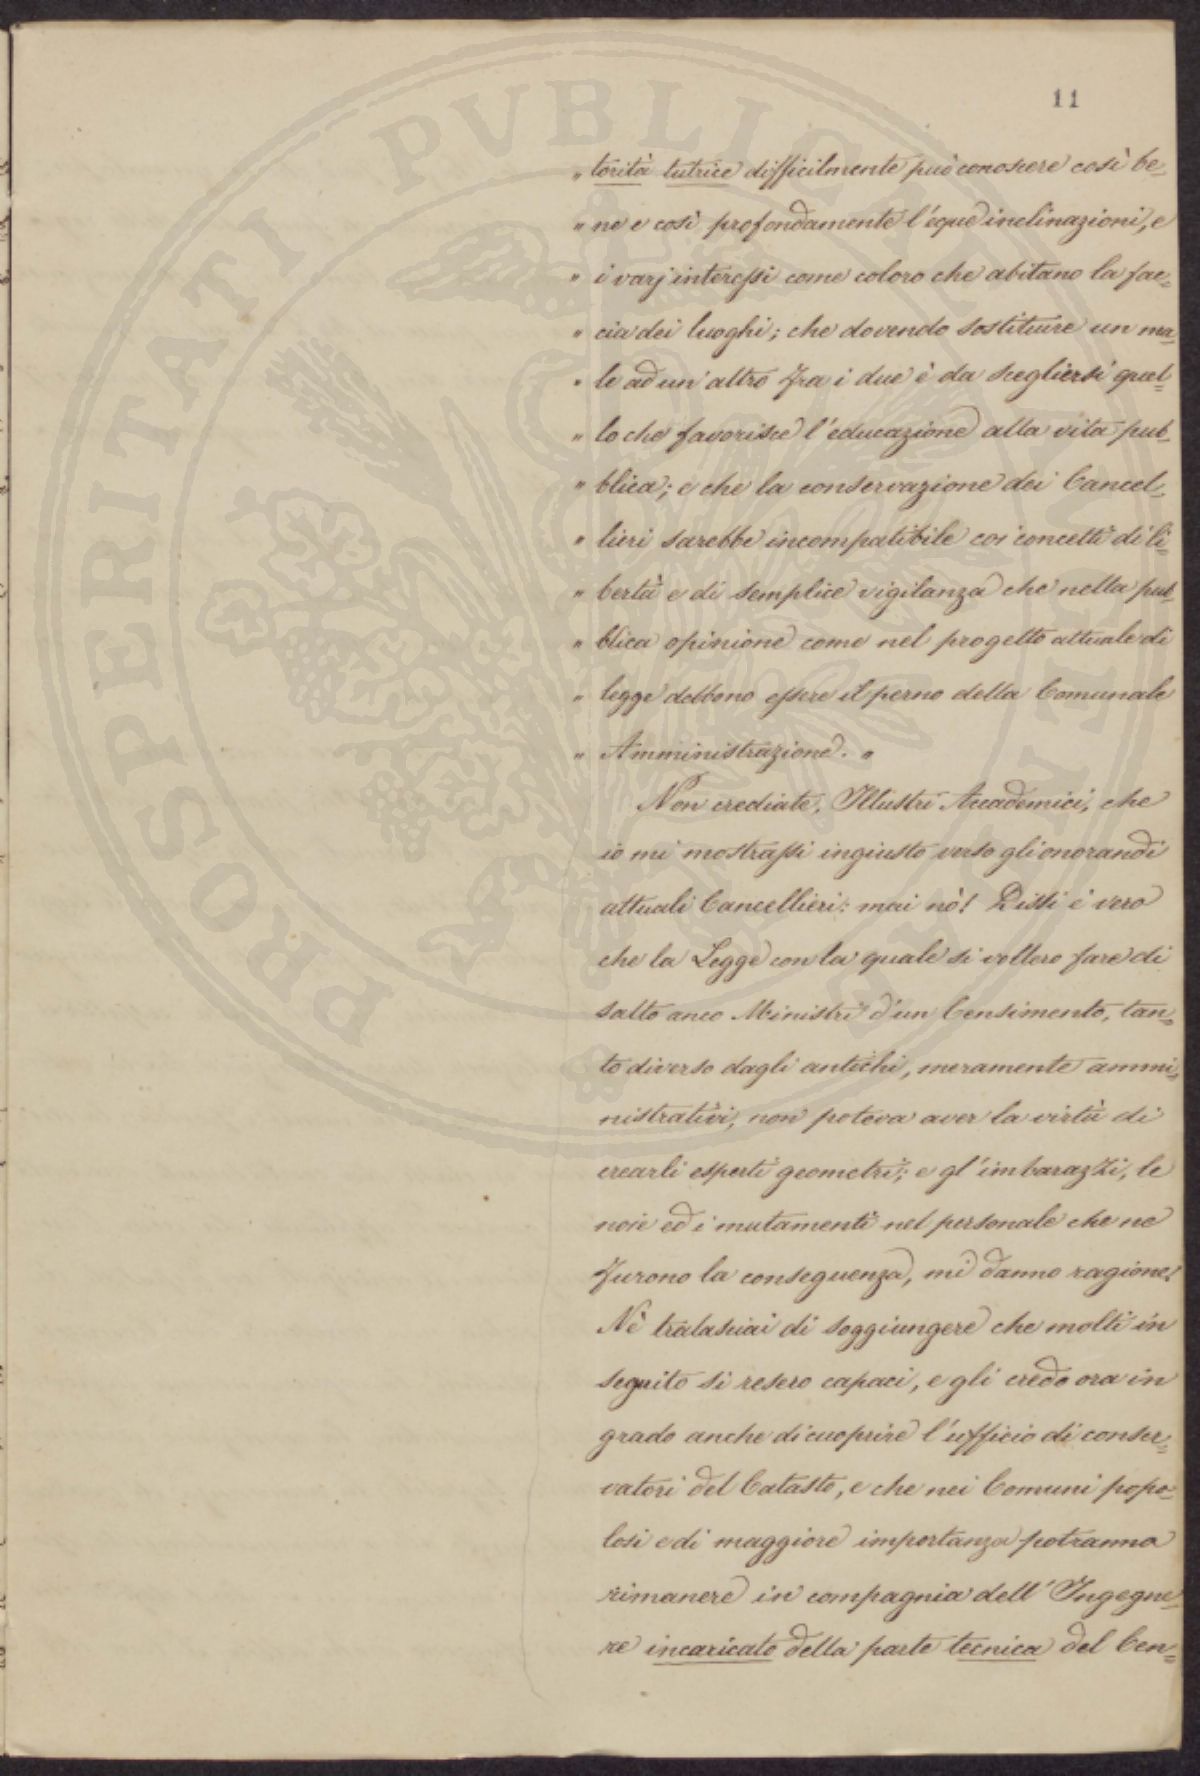 11
„ torità tutrice difficilmente può conoscere così be-
„ ne e così profondamente l'eque inclinazioni, e
„ i varj interessi come coloro che abitano la fac=
„ cia dei luoghi; che dovendo sostituire un ma=
„ le ad un' altro fra i due è da scegliersi quel=
„ lo che favorisce l'educazione alla vita pub=
„ blica; e che la conservazione dei Cancel=
„ lieri sarebbe incompatibile coi concetti di li=
„ bertà e di semplice vigilanza che nella pub=
„ blica opinione come nel progetto attuale di
„ legge debbono essere il perno della Comunale
„ Amministrazione. „
Non crediate, Illustri Accademici, che
io mi mostrassi ingiusto verso gli onorandi
attuali Cancellieri: mai nò! Dissi è vero
che la Legge con la quale si vollero fare di
salto anco Ministri d'un Censimento, tan=
to diverso dagli antichi, meramente ammi=
nistrativi, non poteva aver la virtù di
crearli esperti geometri; e gl'imbarazzi, le
noie ed i mutamenti nel personale che ne
furono la conseguenza, mi danno ragione!
Nè tralasciai di soggiungere che molti in
seguito si resero capaci, e gli credo ora in
grado anche di cuoprire l'ufficio di conser=
vatori del Catasto, e che nei Comuni popo=
losi e di maggiore importanza potranno
rimanere in compagnia dell'Ingegne=
re incaricato della parte tecnica del Cen=
PROSPERITATI PVBLICAE AVGENDAE